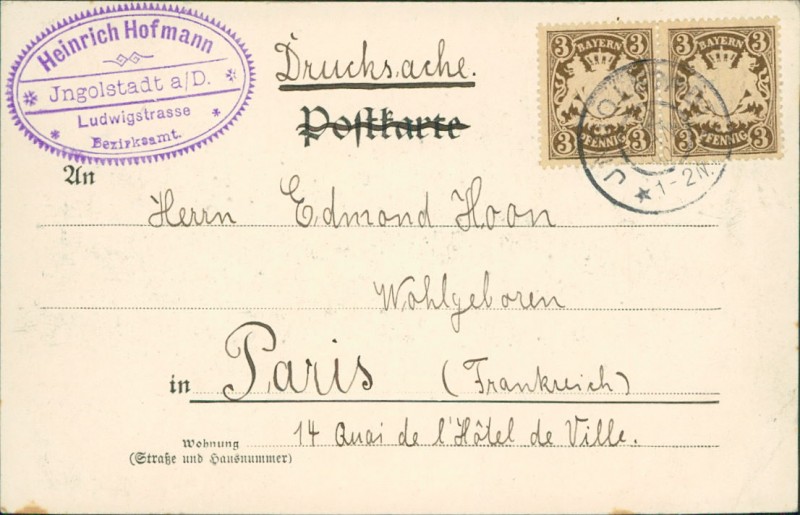 Heinrich Hofmann
Jngolstadt a/D.
Ludwigstrasse
Bezirksamt.
Drucksache.
Postkarte
3 BAYERN 3
3 PFENNIG 3
3 BAYERN 3
3 PFENNIG 3
1-2N.
An
Herrn Edmond Hoon
Wohlgeboren
in Paris (Frankreich)
Wohnung 14 Quai de l'Hôtel de Ville.
(Straße und Hausnummer)